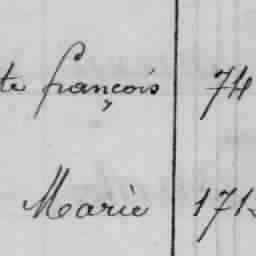 te françois 74
Marie 171